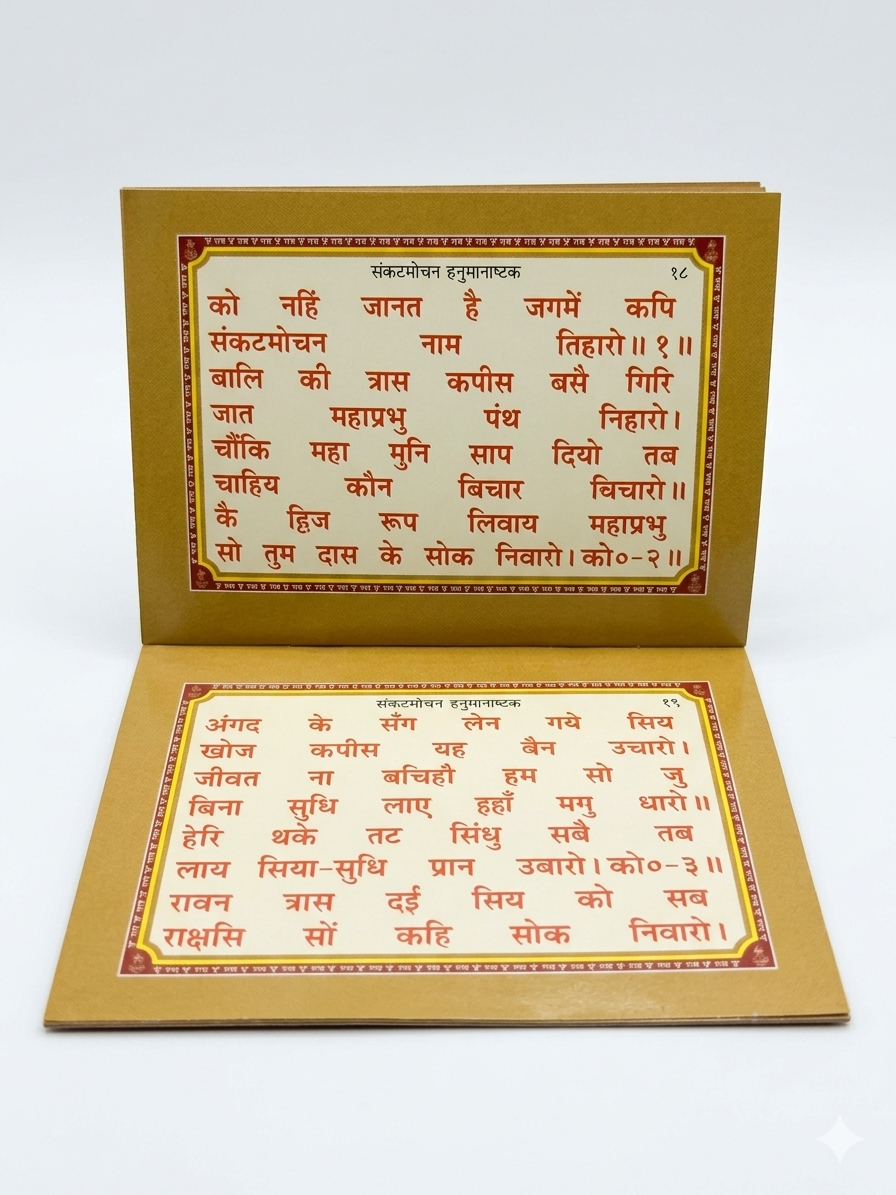 संकटमोचन हनुमानाष्टक १८
को नहिं जानत है जगमें कपि
संकटमोचन नाम तिहारो॥ १॥
बालि की त्रास कपीस बसै गिरि
जात महाप्रभु पंथ निहारो।
चौंकि महा मुनि साप दियो तब
चाहिय कौन बिचार बिचारो॥
कै द्विज रूप लिवाय महाप्रभु
सो तुम दास के सोक निवारो। को०-२॥
संकटमोचन हनुमानाष्टक १९
अंगद के सँग लेन गये सिय
खोज कपीस यह बैन उचारो।
जीवत ना बचिहौ हम सो जु
बिना सुधि लाए इहाँ पगु धारो॥
हेरि थके तट सिंधु सबै तब
लाय सिया-सुधि प्रान उबारो। को०-३॥
रावन त्रास दई सिय को सब
राक्षसि सों कहि सोक निवारो।